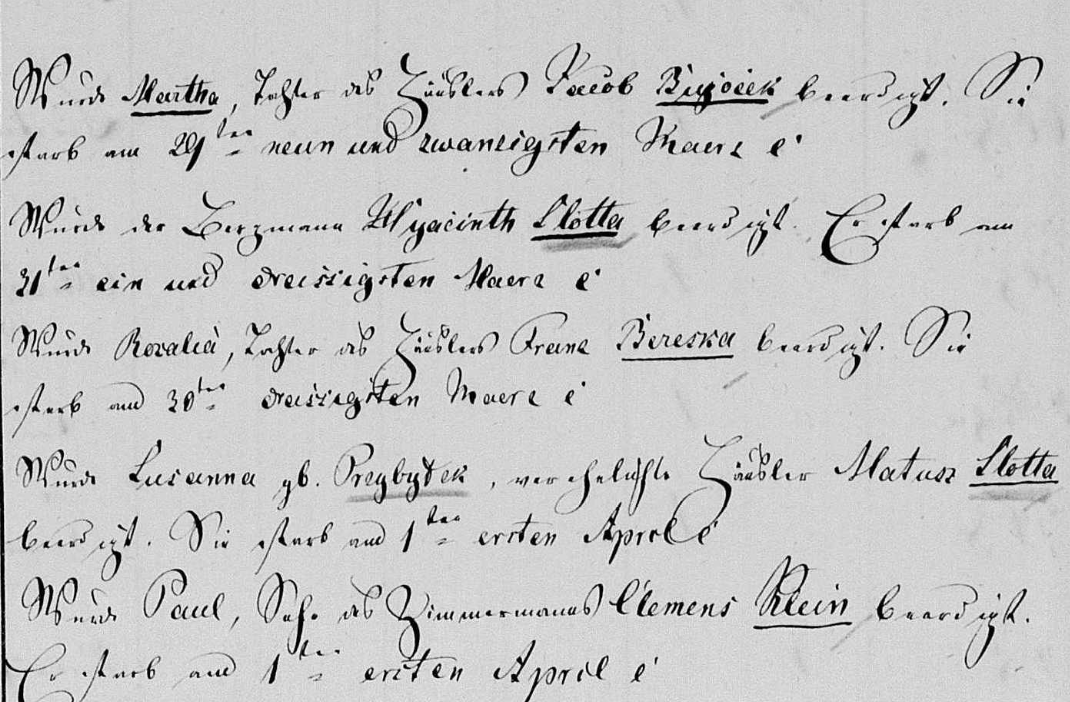 Wurde Martha, Tochter des Häuslers Jacob beerdigt. Sie
starb am 29ten neun und zwanzigsten Maerz
Wurde der Bergmann Hyacinth Slotta beerdigt. Er starb am
31ten ein und dreissigsten Maerz
Wurde Rozalia, Tochter des Häuslers Franz Bereska beerdigt. Sie
starb am 30ten dreissigsten Maerz
Wurde Susanna gb. Przybytek, verehelichte Häusler Matusz Slotta
beerdigt. Sie starb am 1ten ersten April
Wurde Paul, Sohn des Zimmermanns Clemens Klein beerdigt.
Er starb am 1ten ersten April